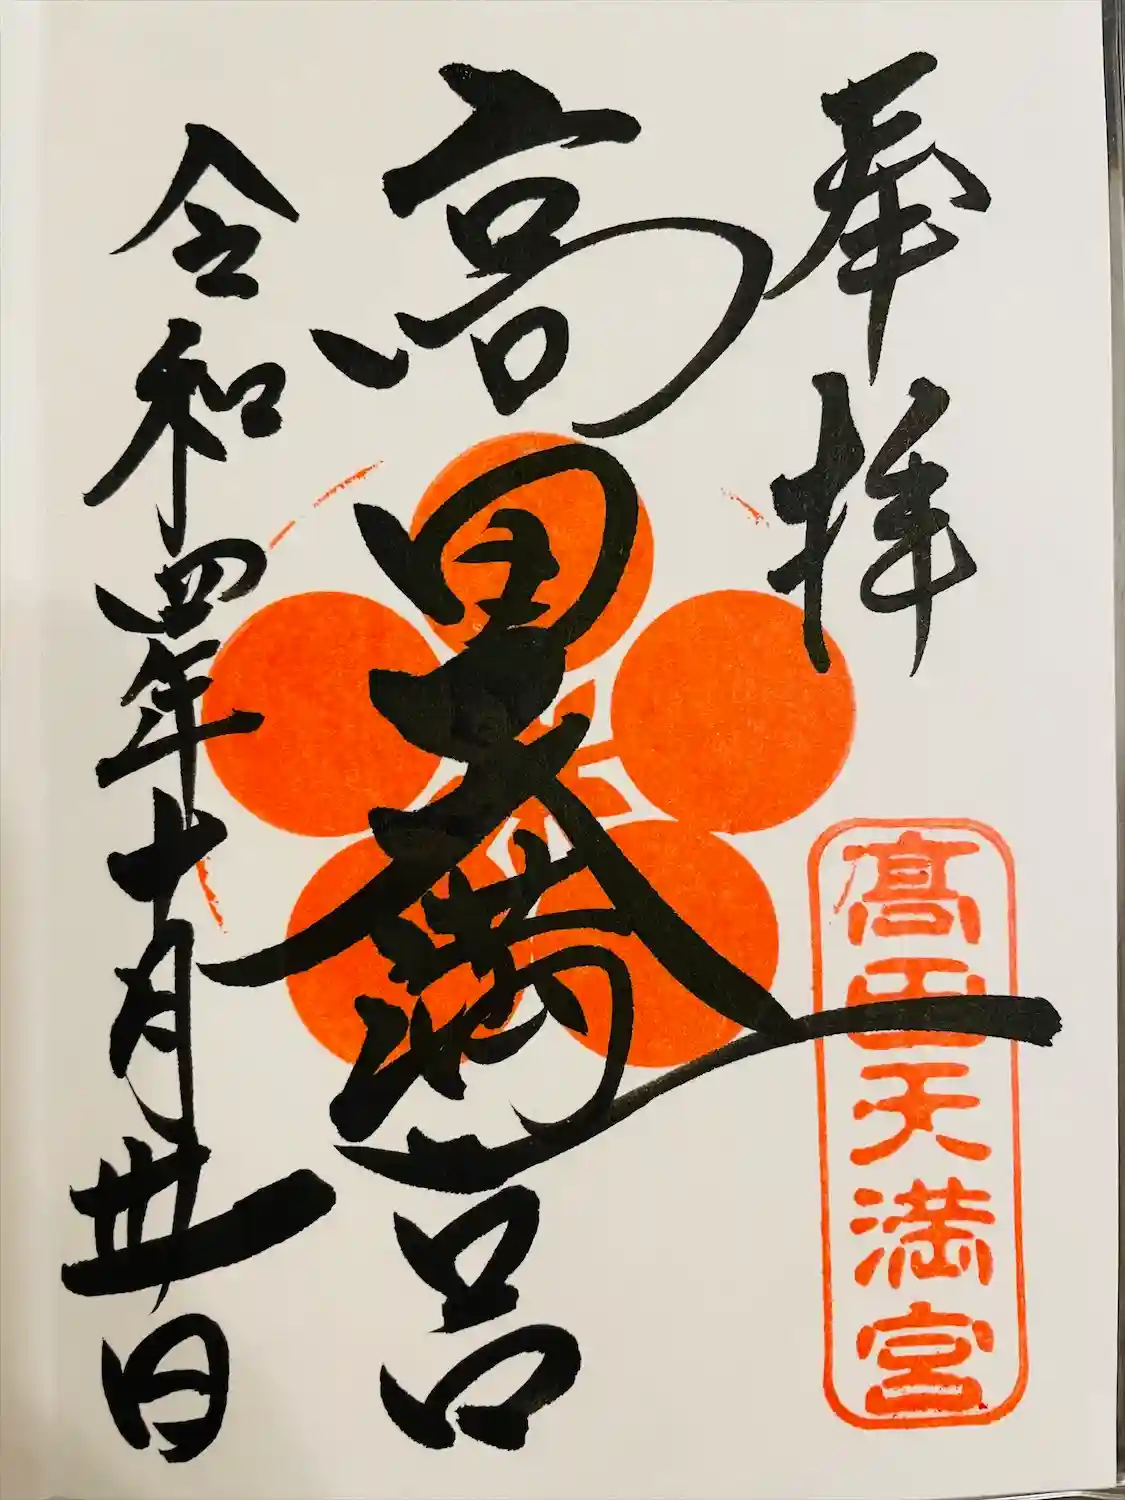 奉拝
高田天満宮
高田天満宮
令和四年十月卅日